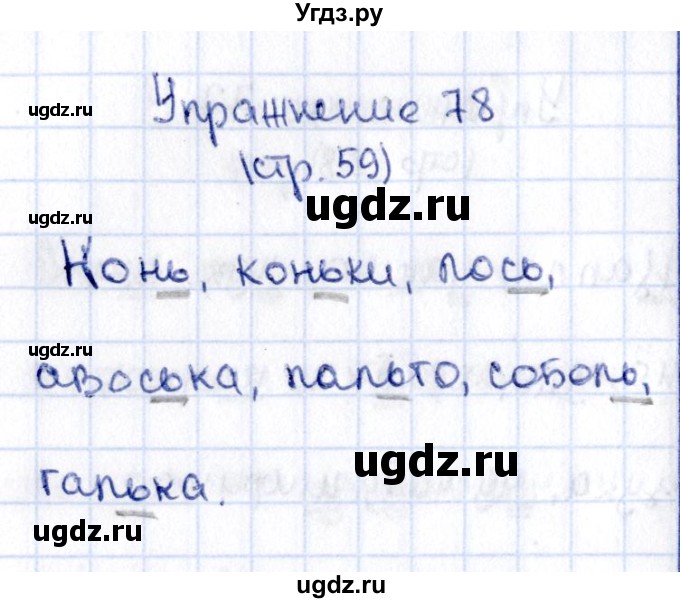 Угдз.ру
ugdz.ru
Упражнение 78
ugdz.ru
(стр. 59)
ugdz.ru
ugdz.ru
Конь, коньки, лось,
ugdz.ru
авоська, пальто, соболь,
ugdz.ru
галька.
ugdz.ru
ugdz.ru